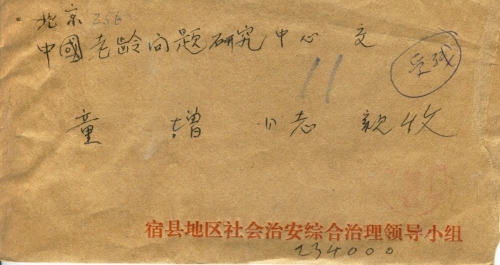 北京
中國老龄问题研究中心 交
童 增 同志 亲收
宿县地区社会治安综合治理领导小组
234000